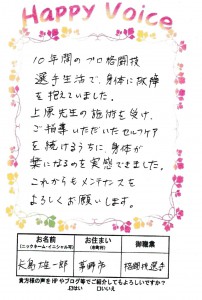 Happy Voice
10年間のプロ格闘技
選手生活で、身体に故障
を抱えていました。
上原先生の施術を受け、
ご指導いただいたセルフケア
を続けるうちに、身体が
楽になるのを実感できました。
これからもメンテナンスを
よろしくお願いします。
お名前 お住まい 御職業
(ニックネーム・イニシャル可) (市町村)
矢島雄一郎 茅野市 格闘技選手
貴方様の声をHPやブログ等でご紹介してもよろしいですか?
はい □いいえ